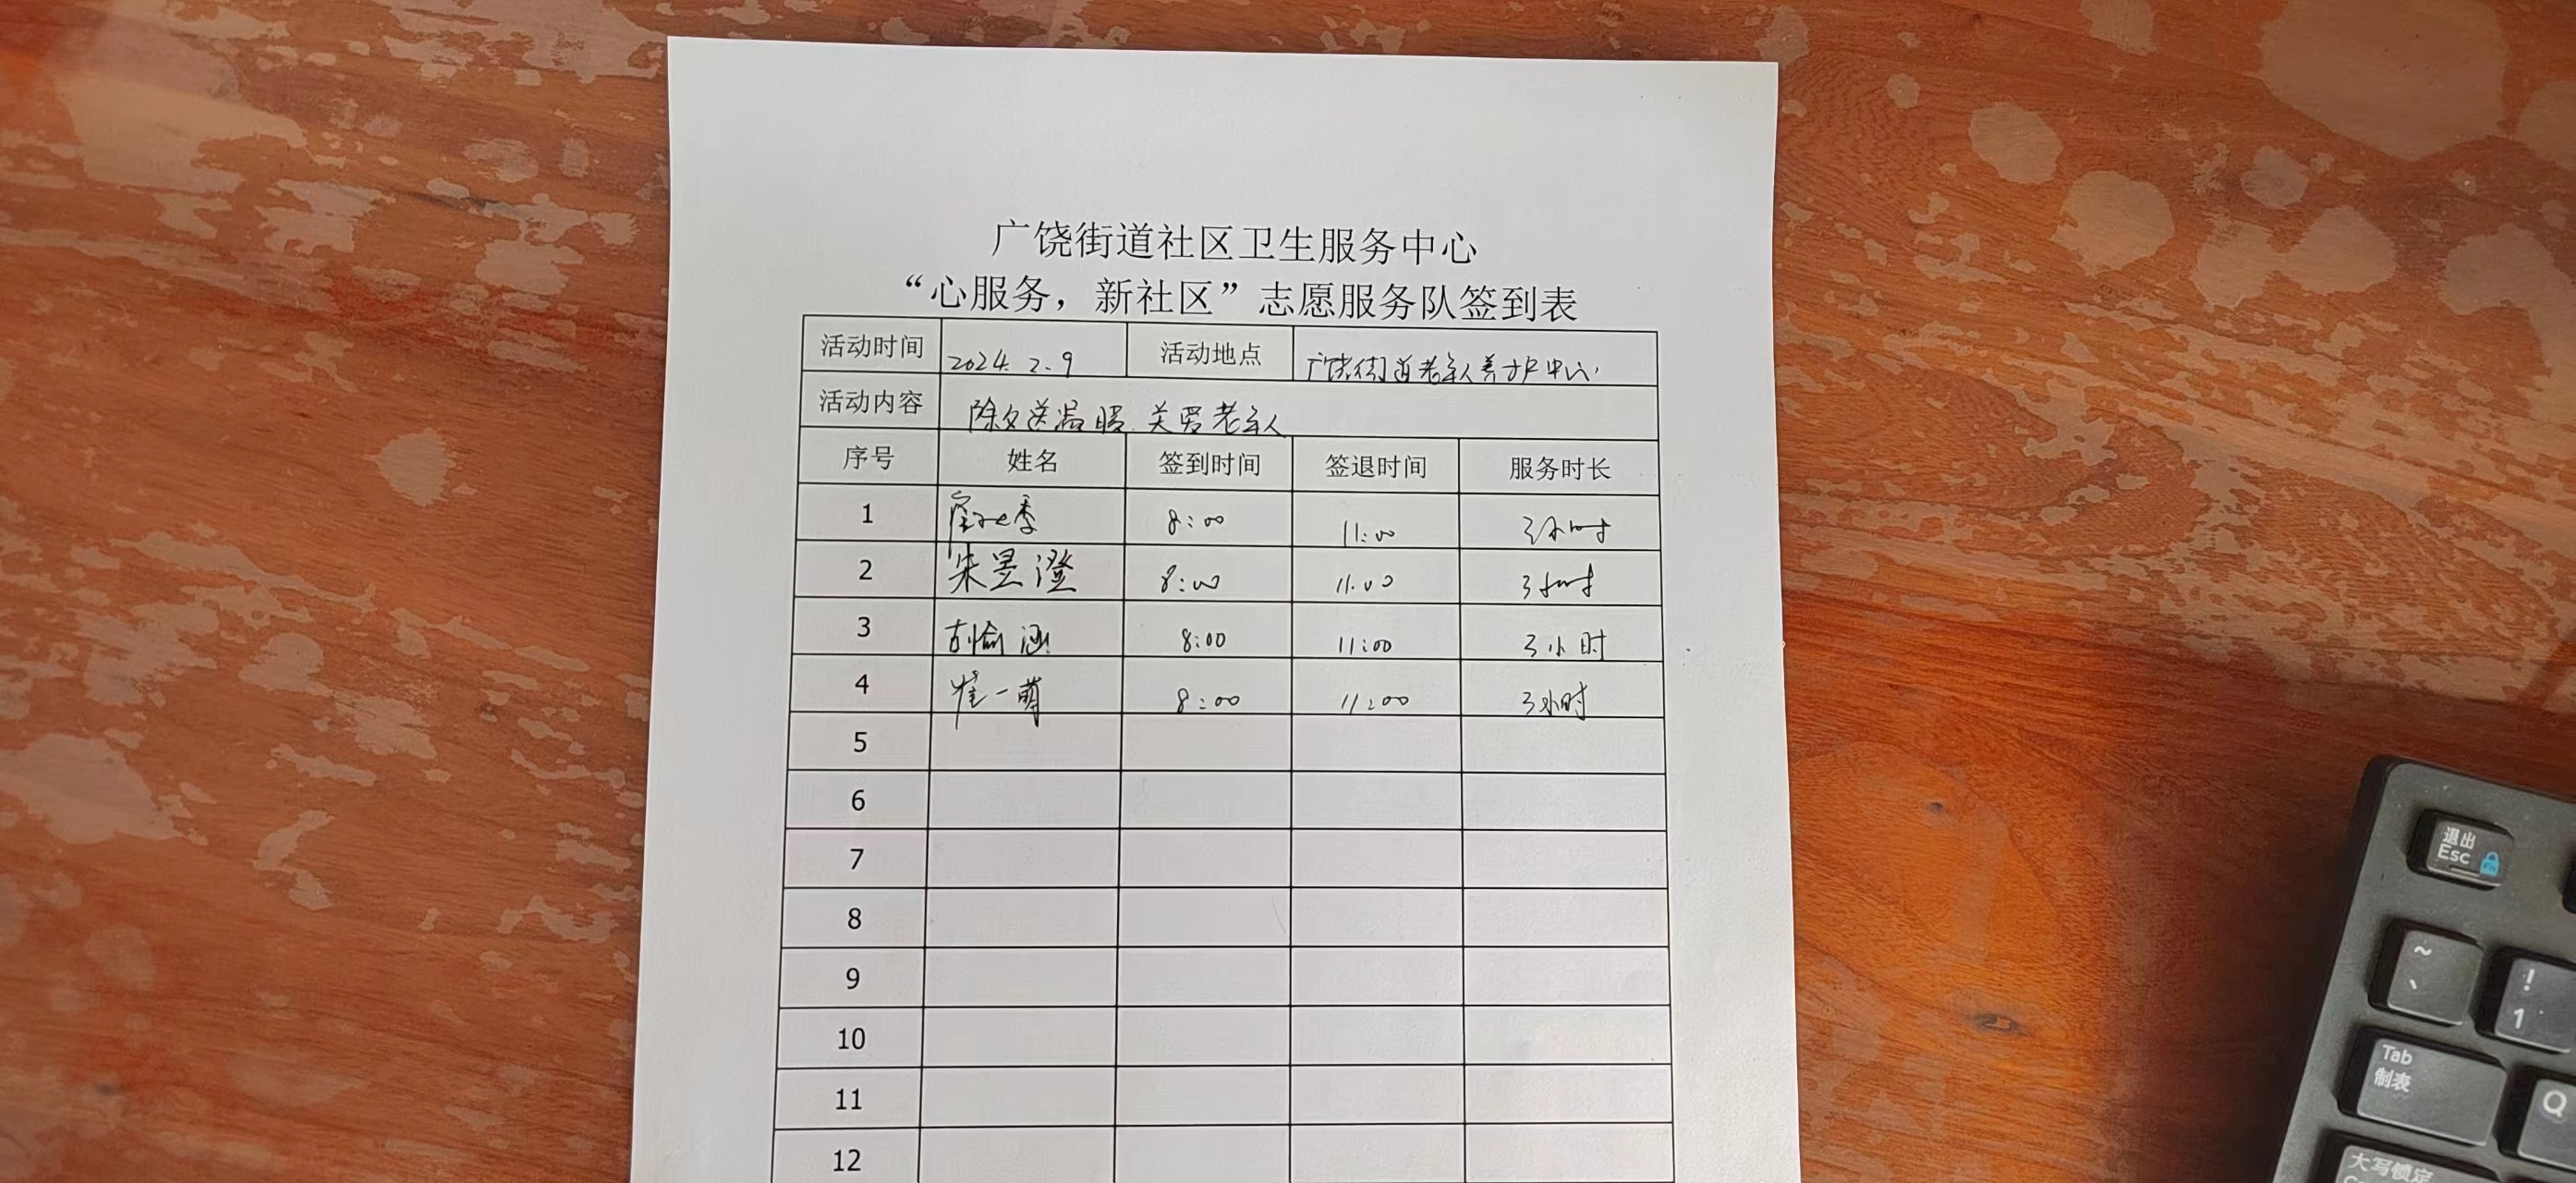 广饶街道社区卫生服务中心
“心服务，新社区”志愿服务队签到表
活动时间 2024.2.9 活动地点 广饶街道老年人养护中心
活动内容 除夕送温暖.关爱老年人
序号 姓名 签到时间 签退时间 服务时长
1 8:00 11:00 3小时
2 朱昱澄 8:00 11:00 3小时
3 胡愉涵 8:00 11:00 3小时
4 崔一萌 8:00 11:00 3小时
5
6
7
8
9
10
11
12
退出
Esc
~
、
!
1
Tab
制表
Q
大写锁定